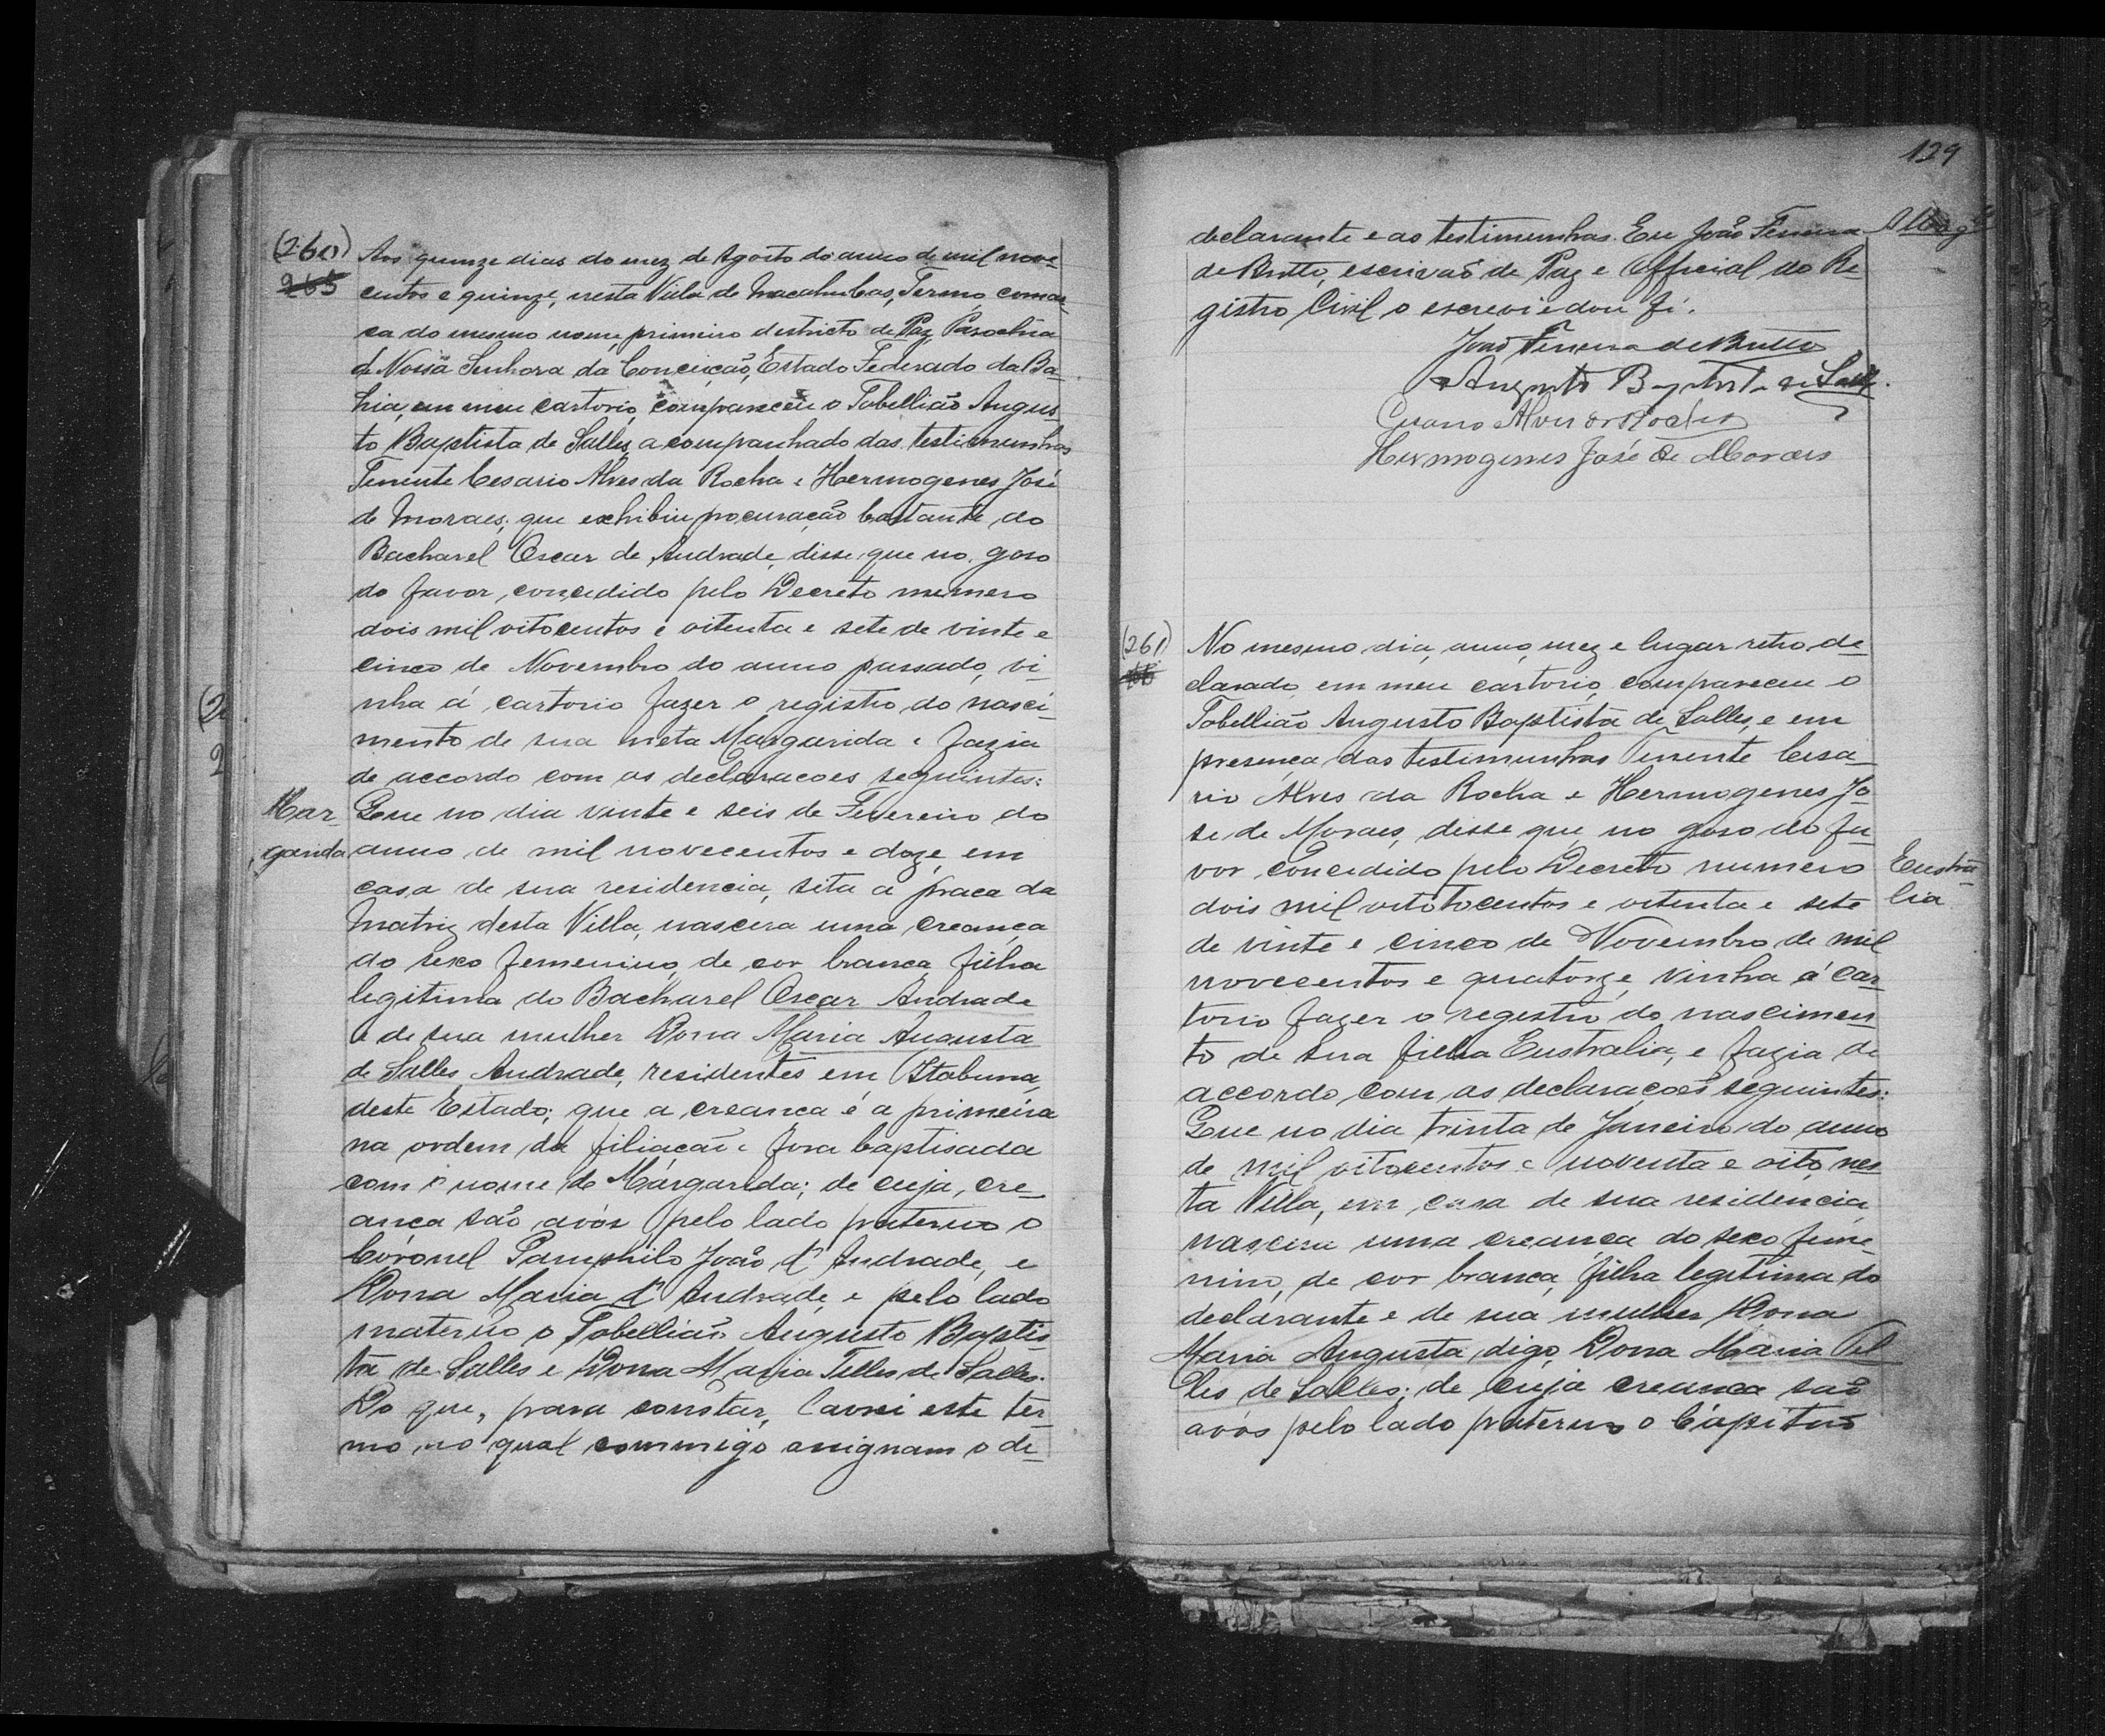 (260)
265
Aos quinze dias do mez de Agosto do anno de mil nove-
centos e quinze, nesta Villa de Macahubas, Termo comar-
ca do mesmo nome, primeiro destricto de Paz, Parochia
de Nossa Senhora da Conceição, Estado Federado da Ba-
hia, em meu cartorio, compareceu o Tabellião Augus-
to Baptista de Salles, acompanhado das testimunhas
Tenente Cesario Alves da Rocha e Hermogenes José
de Moraes; que exhibiu procuração bastante do
Bacharel Oscar de Andrade, disse que no goso
do favor, concedido pelo Decreto numero
dois mil oitocentos e oitenta e sete de vinte e
cinco de Novembro do anno passado, vi-
nha á cartorio fazer o registro do nasci-
mento de sua neta Margarida e fazia
de accordo com as declaracoes seguintes:
Mar-
garida
Que no dia vinte e seis de Fevereiro do
anno de mil novecentos e doze, em
casa de sua residencia, sita a praca da
Matriz desta Villa, nascera uma creança
do sexo femenino, de cor branca, filha
legitima do Bacharel Oscar Andrade
e de sua mulher Dona Maria Augusta
de Salles Andrade, residentes em Itabuna,
deste Estado; que a creanca é a primeira
na ordem da filiação e fora baptisada
com o nome de Margarida; de cuja, cre-
ança são avós pelo lado paterno o
Coronel Pamphilo João d'Andrade, e
Dona Maria d'Andrade, e pelo lado
materno o Tabellião Augusto Baptis-
ta de Salles e Dona Maria Telles de Salles.
Do que, para constar, lavrei este ter-
mo, no qual commigo assignam o de-
129
declarante e as testimunhas. Eu João Ferreira
de Britto, escrivão de Paz e Official do Re-
gistro Civil o escrevi e dou fé.
João Ferreira de Britto
Augusto Baptista de Salles.
Cesario Alves da Rocha
Hermogenes José de Moraes
(261)
No mesmo dia, anno, mez e lugar retro de-
clarado, em meu cartorio, compareceu o
Tabellião Augusto Baptista de Salles, e em
presença das testimunhas Tenente Cesa-
rio Alves da Rocha e Hermogenes Jo-
se de Moraes, disse que, no goso do fa-
vor, concedido pelo Decreto numero
dois mil oitotocentos e oitenta e sete
Eustra-
lia
de vinte e cinco de Novembro de mil
novecentos e quatorze, vinha á car-
torio fazer o registro do nascimen-
to de sua filha Eustralia, e fazia de
accordo com as declaraçoes seguintes:
Que no dia trinta de Janeiro do anno
de mil oitocentos e noventa e oito, nes-
ta Villa, em casa de sua residencia,
nascera uma creança do sexo feme-
nino, de cor branca, filha legitima do
declarante e de sua mulher Dona
Maria Augusta digo, Dona Maria Tel-
les de Salles; de cuja creanca são
avós pelo lado paterno o Capitão